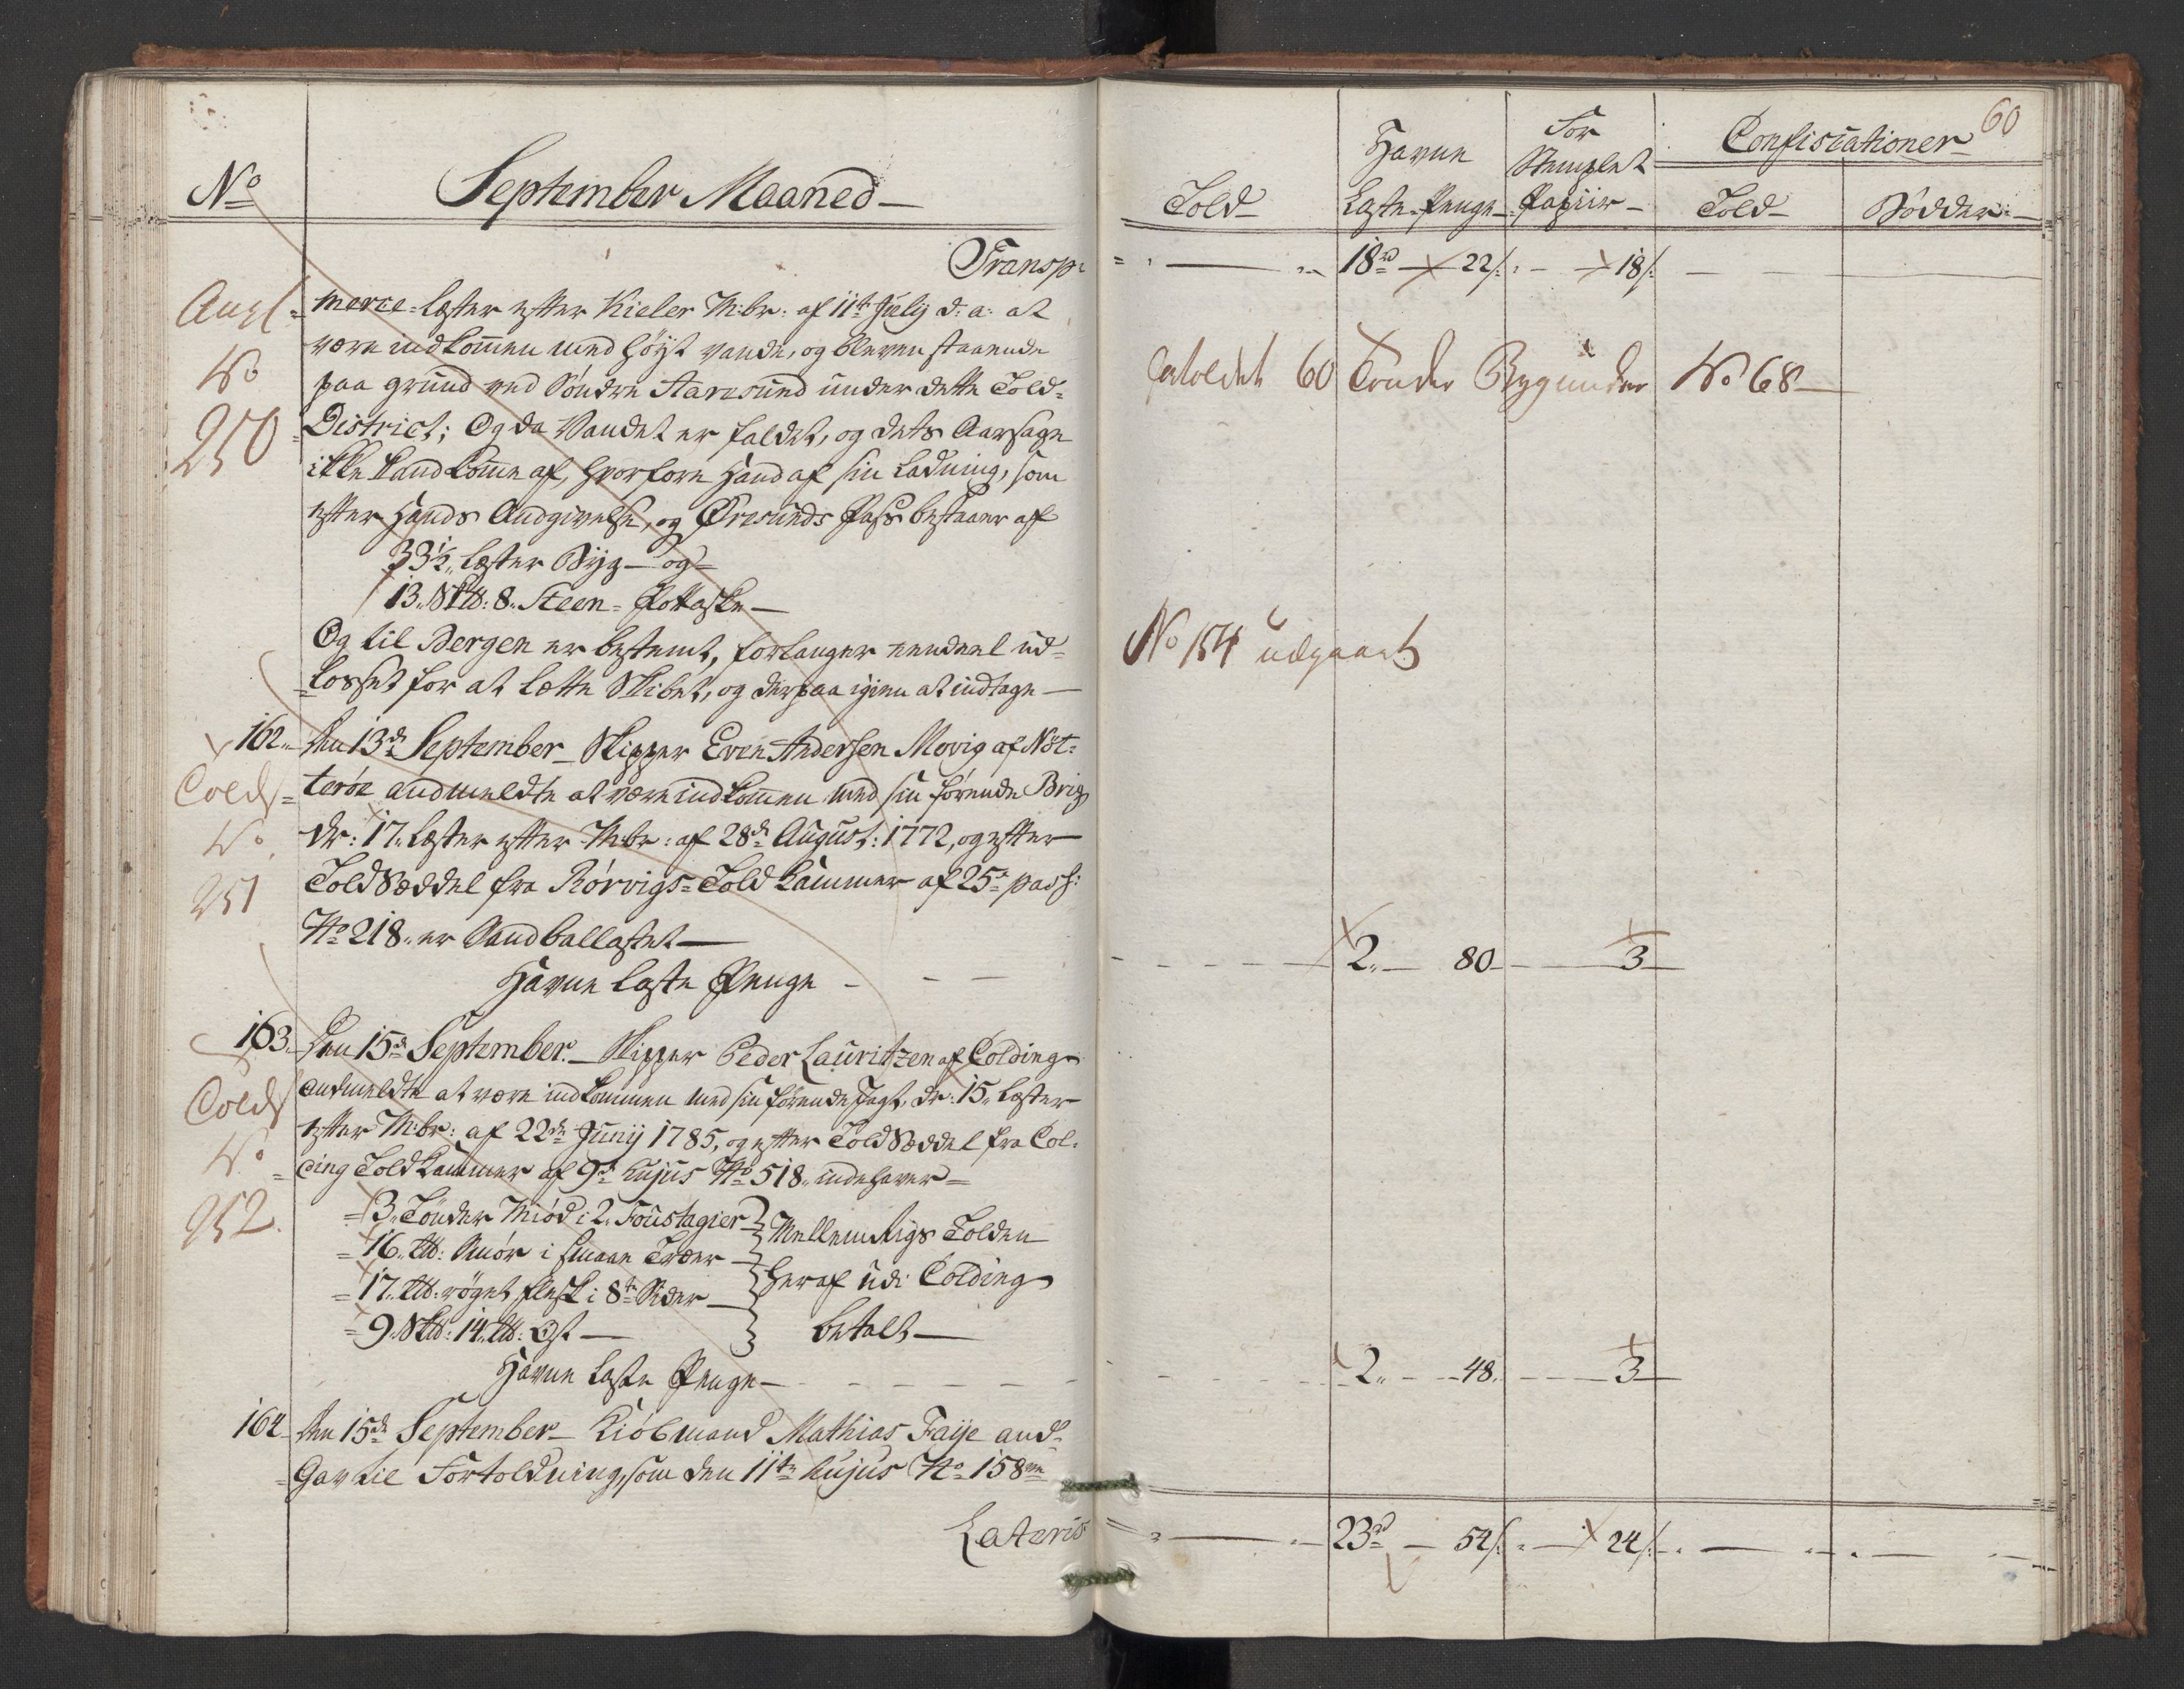 No
September Maaned
Transp:
Angl.
No
250
merce-læster efter Kieler M:br: af 11te July d: a: at
være indkommen med høyt vande, og bleven staaende
paa grund ved Søndre Aarøsund under dette Told-
District; Og da Vandet er faldet, og dets Aarsage
ikke kand komme af, hvorfore hand af sin Ladning, som
efter hands Andgivelse, og Øresunds Pass bestaaer af
33½ læster Byg og
13 Sk℔: 8 Steen Pottaske
Og til Bergen er bestemt, forlanger eendeel ud-
losset for at lætte Skibet, og derpaa igien at indtage
162. Den 13de September Skipper Even Andersen Movig af Nöt-
Colds
No
251
terøe andmeldte at være indkommen med sin førende Brig
dr: 17 læster efter M:br: af 28de August: 1772, og efter
Told Sæddel fra Rørvigs Told Kammer af 25de pass:
No 218 er Sandballastet
Havne Laste Penge
163. Den 15de September. Skipper Peder Lauritzen af Colding
Colds
No
252.
andmeldte at være indkommen med sin førende Jagt, dr: 15 læster
efter M:br: af 22de Junij 1785, og efter Told Sæddel fra Col-
ding Told Kammer af 9de hujus No 518 indehaver
3 Tönder Miød i 2 Foustagier
16 ℔: Smör i smaae Træer
17 ℔: röget flesk i 8te Sider
9 Sk℔: 14 ℔: Ost
Mellem Rigs Tolden
heraf udi Colding
betalt
Havne Laste Penge
164 Den 15de September Kiöbmand Mathias Faye and-
Gav til Fortoldning, som den 11te hujus No 158ve
Lateris
60
Told
Havne
Laste-Penge
For
Stemplet
Papiir
Confiscationer
Told
Bødder
18rd 22/: 18/:
fortoldet 60 Tönder Byg under No 68
No 184 udgaaet
2 80 3
2 48 3
23rd 54/: 24/: